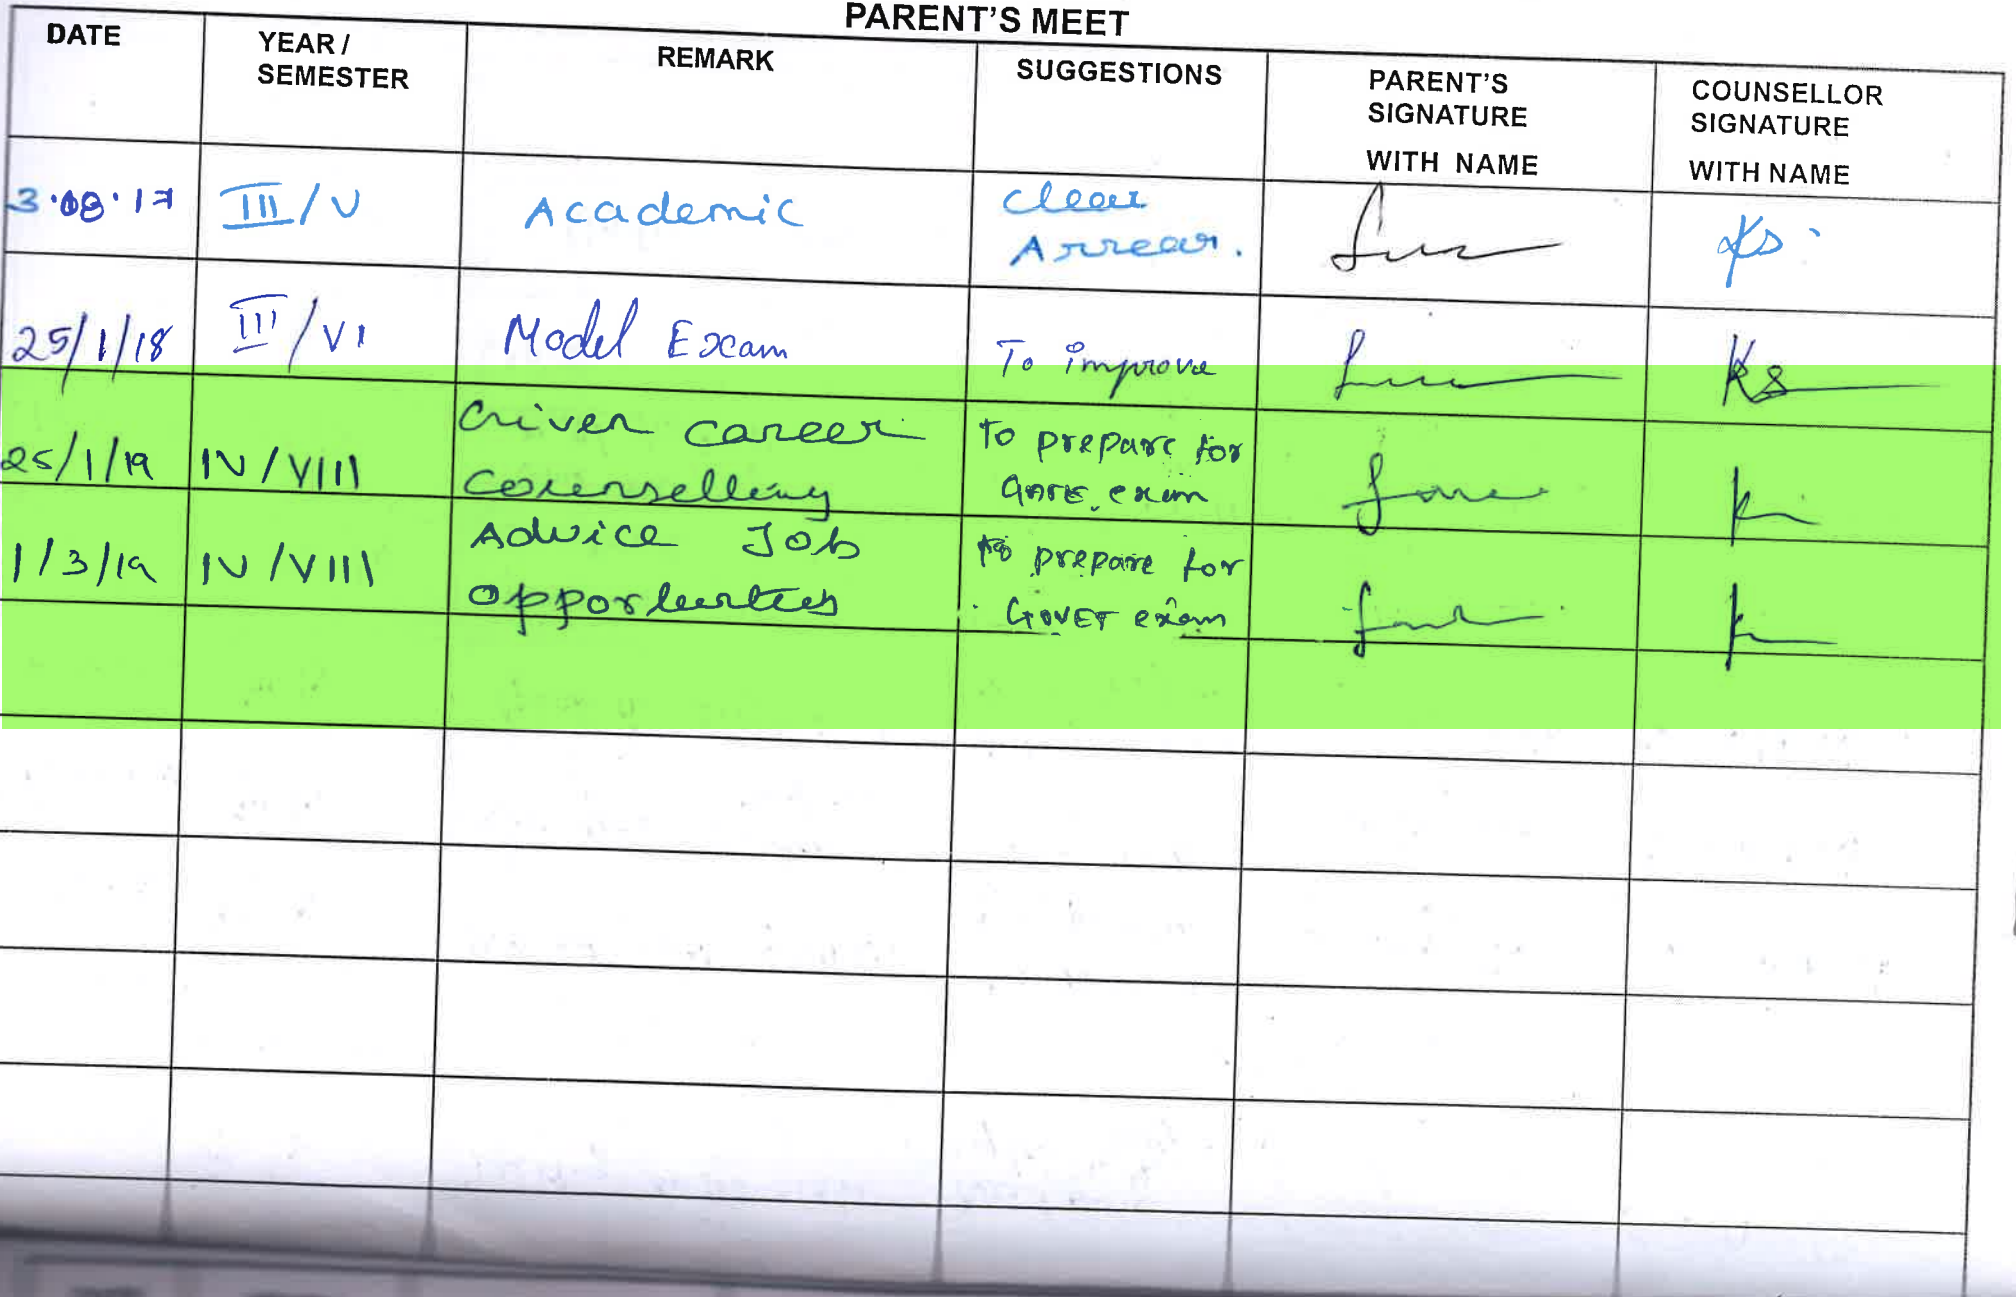 PARENT'S MEET
DATE YEAR / SEMESTER REMARK SUGGESTIONS PARENT'S SIGNATURE WITH NAME COUNSELLOR SIGNATURE WITH NAME
3.08.17 III/V Academic Clear Arrear.
25/1/18 III/VI Model Exam To improve Ks
25/1/19 IV/VIII Given career Counselling To prepare for GATE exam
1/3/19 IV/VIII Advice Job Opportunities to prepare for GOVET exam